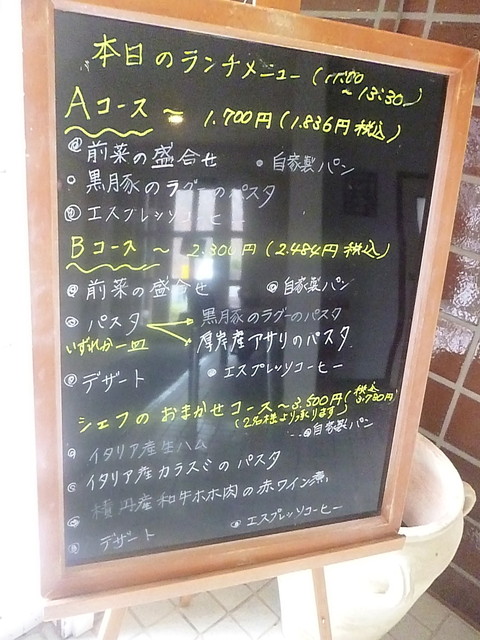 本日のランチメニュー (11:00
～13:30)
Aコース ～ 1.700円 (1.836円 税込)
◎前菜の盛合せ ◦自家製パン
○黒豚のラグーのパスタ
◎エスプレッソコーヒー
Bコース ～ 2.300円 (2.484円 税込)
◎前菜の盛合せ ◎自家製パン
◎パスタ 黒月豚のラグーのパスタ
いずれか一皿 厚岸産アサリのパスタ
◎デザート ◦エスプレッソコーヒー
シェフの おまかせ コース ～3.500円 (税込 3.780円)
(2名様より承ります)
◎自家製パン
◎イタリア産生ハム
◎イタリア産カラスミのパスタ
◎積丹産和牛ホホ肉の赤ワイン煮
◎デザート ◎エスプレッソコーヒー